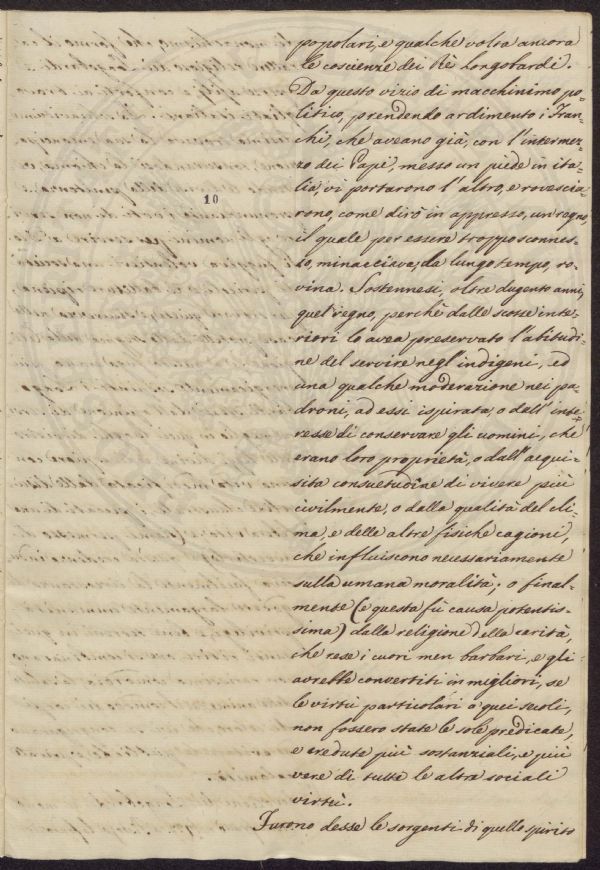 popolari, e qualche volta ancora
le coscienze dei Rè Longobardi.
Da questo vizio di macchinimo po=
litico, prendendo ardimento i Fran=
chi, che aveano già, con l'intermez=
zo dei Papi, messo un piede in ita=
lia, vi portarono l'altro, e rovescia=
rono, come dirò in appresso, un regno,
10
il quale per essere troppo sconnes=
so, minacciava, da lungo tempo, ro=
vina. Sostennesi, oltre dugento anni,
quel regno, perchè dalle scosse inte=
riori lo avea preservato l'atitudi=
ne del servire negl'indigeni, ed
una qualche moderazione nei pa=
droni, ad essi ispirata, o dall'inte=
resse di conservare gli uomini, che
erano loro proprietà, o dall'acqui=
sita consuetudine di vivere più
civilmente, o dalla qualità del cli=
ma, e delle altre fisiche cagioni,
che influiscono necessariamente
sulla umana moralità; o final=
mente (e questa fù causa potentis=
sima) dalla religione della carità,
che rese i cuori men barbari, e gli
avrebbe convertiti in migliori, se
le virtù particolari a quei secoli,
non fossero state le sole predicate,
e credute più sostanziali, e più
vere di tutte le altre sociali
virtù.
Furono desse le sorgenti di quello spirito